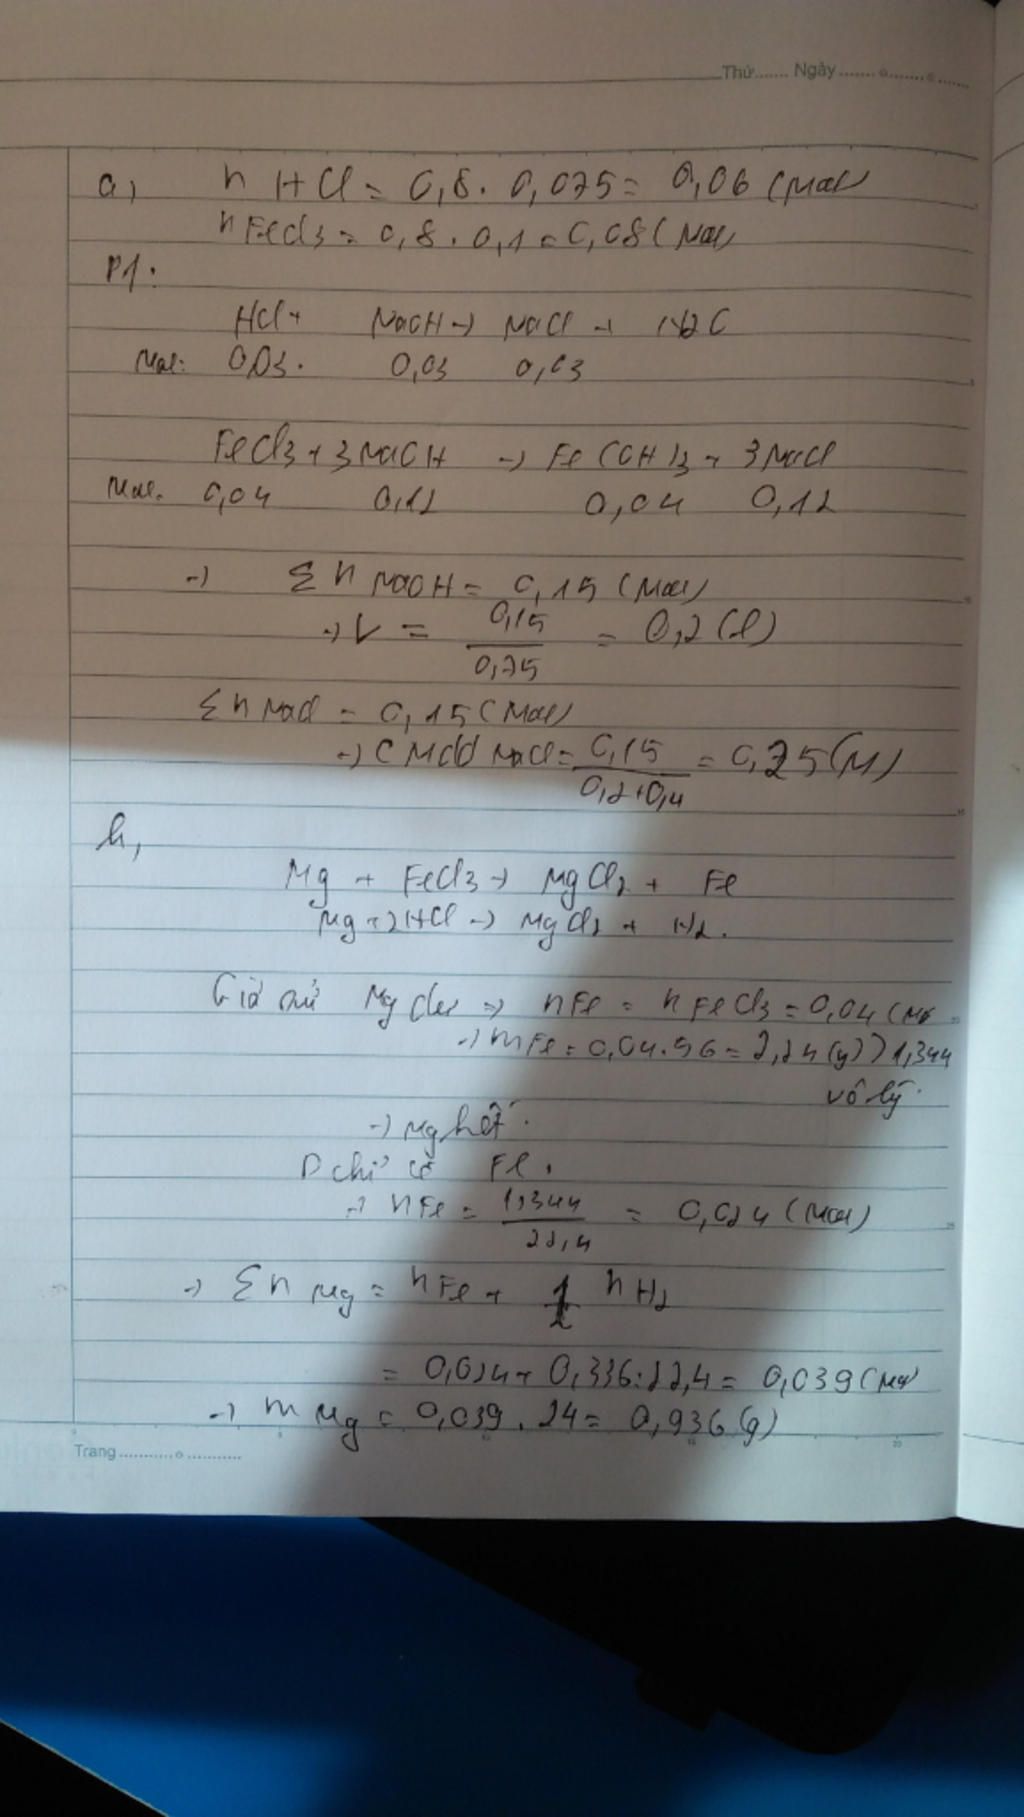 Thứ....... Ngày........o........o......
a, nHCl = 0,8 . 0,075 = 0,06 (mol)
nFeCl3 = 0,8 . 0,1 = 0,08 (mol)
P1:
HCl + NaOH → NaCl + H2O
Mol: 0,03. 0,03 0,03
FeCl3 + 3NaOH → Fe(OH)3 + 3NaCl
Mol. 0,04 0,12 0,04 0,12
→ Σ n NaOH = 0,15 (mol)
→ V = 0,15 / 0,75 = 0,2 (l)
Σ n NaCl = 0,15 (mol)
→ CMdd NaCl = 0,15 / 0,2+0,4 = 0,25 (M)
b,
Mg + FeCl3 → MgCl2 + Fe
Mg + 2HCl → MgCl2 + H2.
Giả sử Mg dư → nFe = nFeCl3 = 0,04 (mol
→ mFe = 0,04.56 = 2,24 (g) > 1,344
vô lý.
→ Mg hết.
D chỉ có Fe.
→ nFe = 1,344 / 22,4 = 0,024 (mol)
→ Σ n Mg = nFe + 1/2 nH2
= 0,024 + 0,336:22,4 = 0,039 (mol)
→ m Mg = 0,039 . 24 = 0,936 (g)
Trang...........o...........